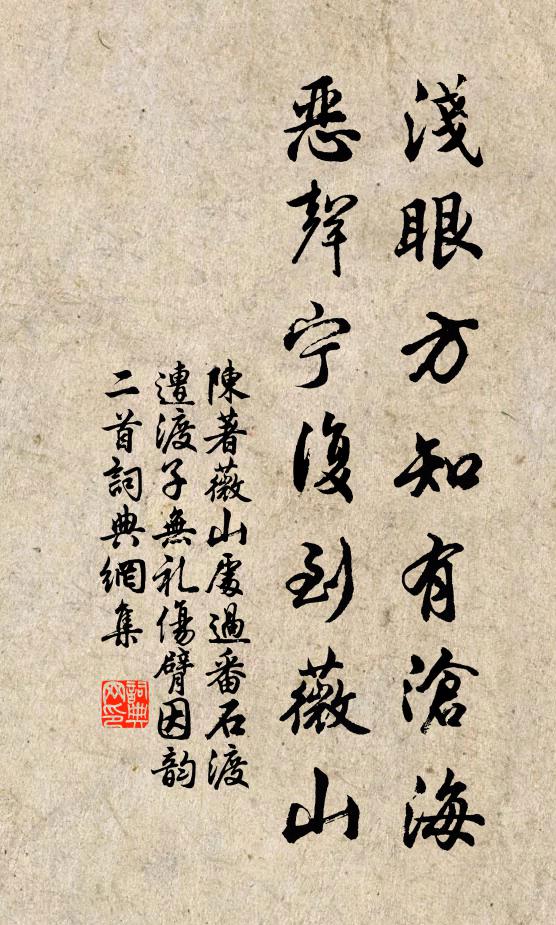 淺眼方知有滄海
惡聲宁復到薇山
陳著薇山處過番石渡
遭渡子無礼傷臂因韵
二首詞典網集
詞典网印